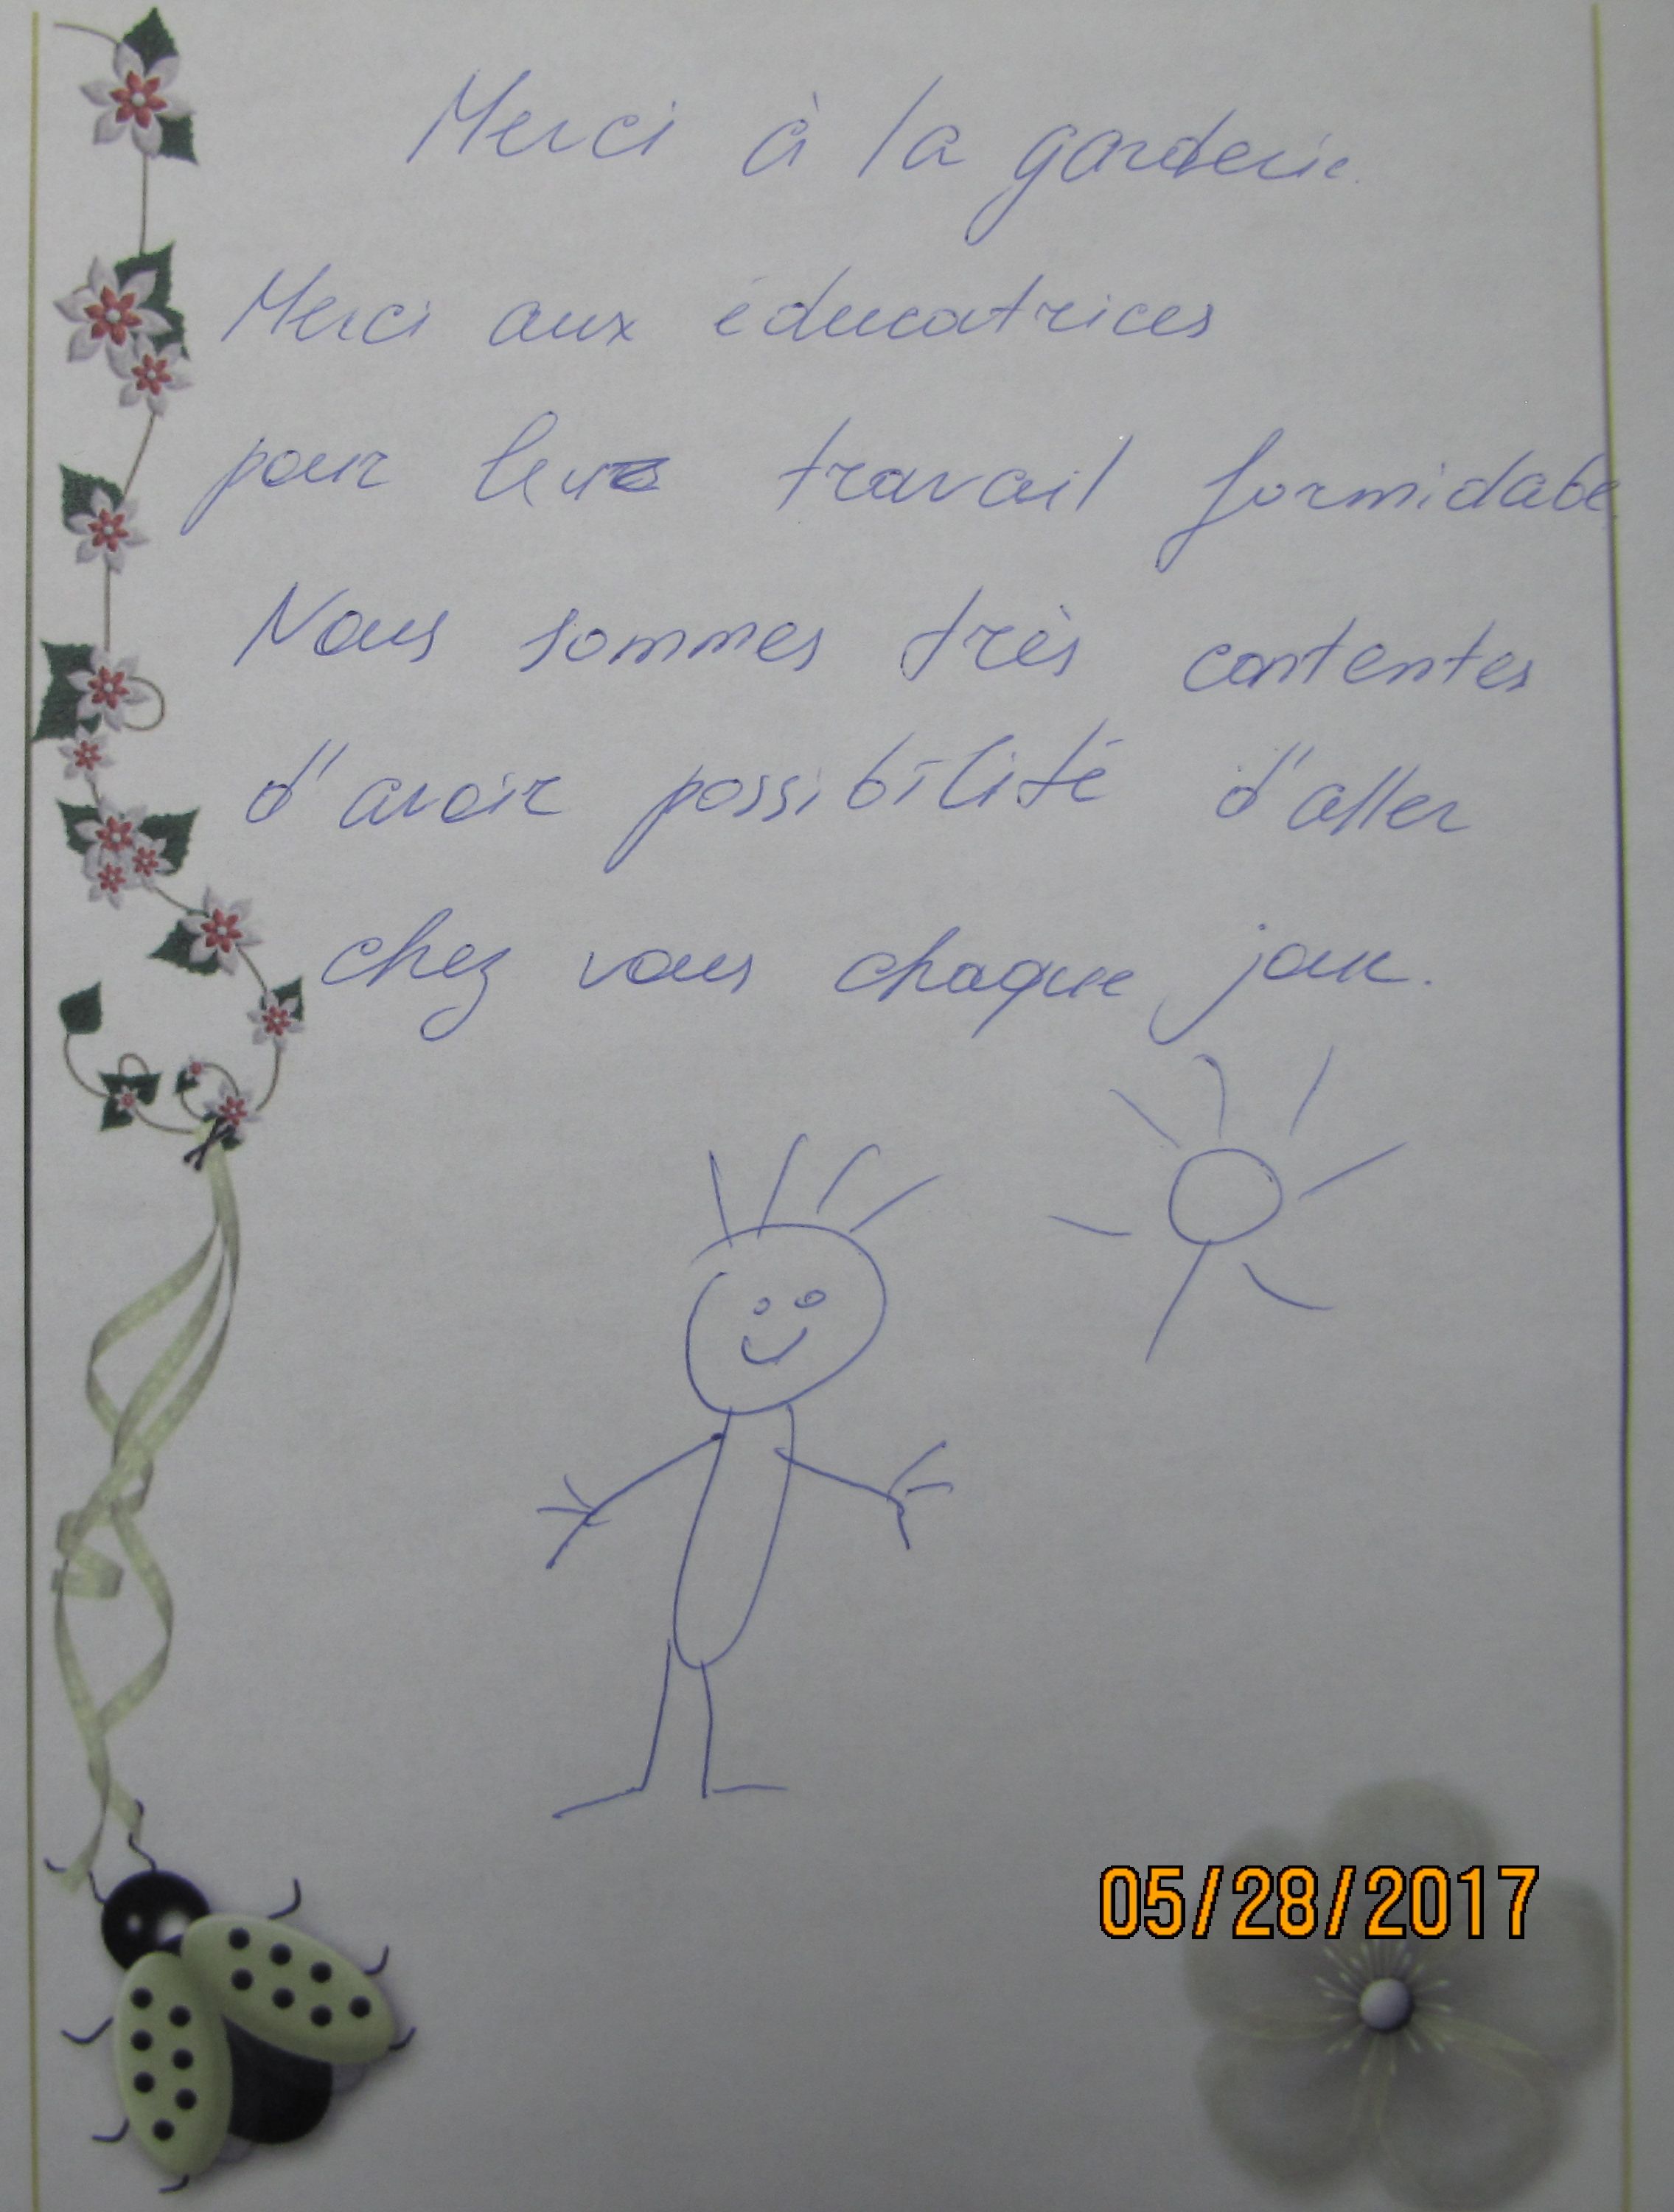 Merci à la garderie.
Merci aux éducatrices
pour leur travail formidabe
Nous sommes très contentes
d'avoir possibilité d'aller
chez vous chaque jour.
05/28/2017